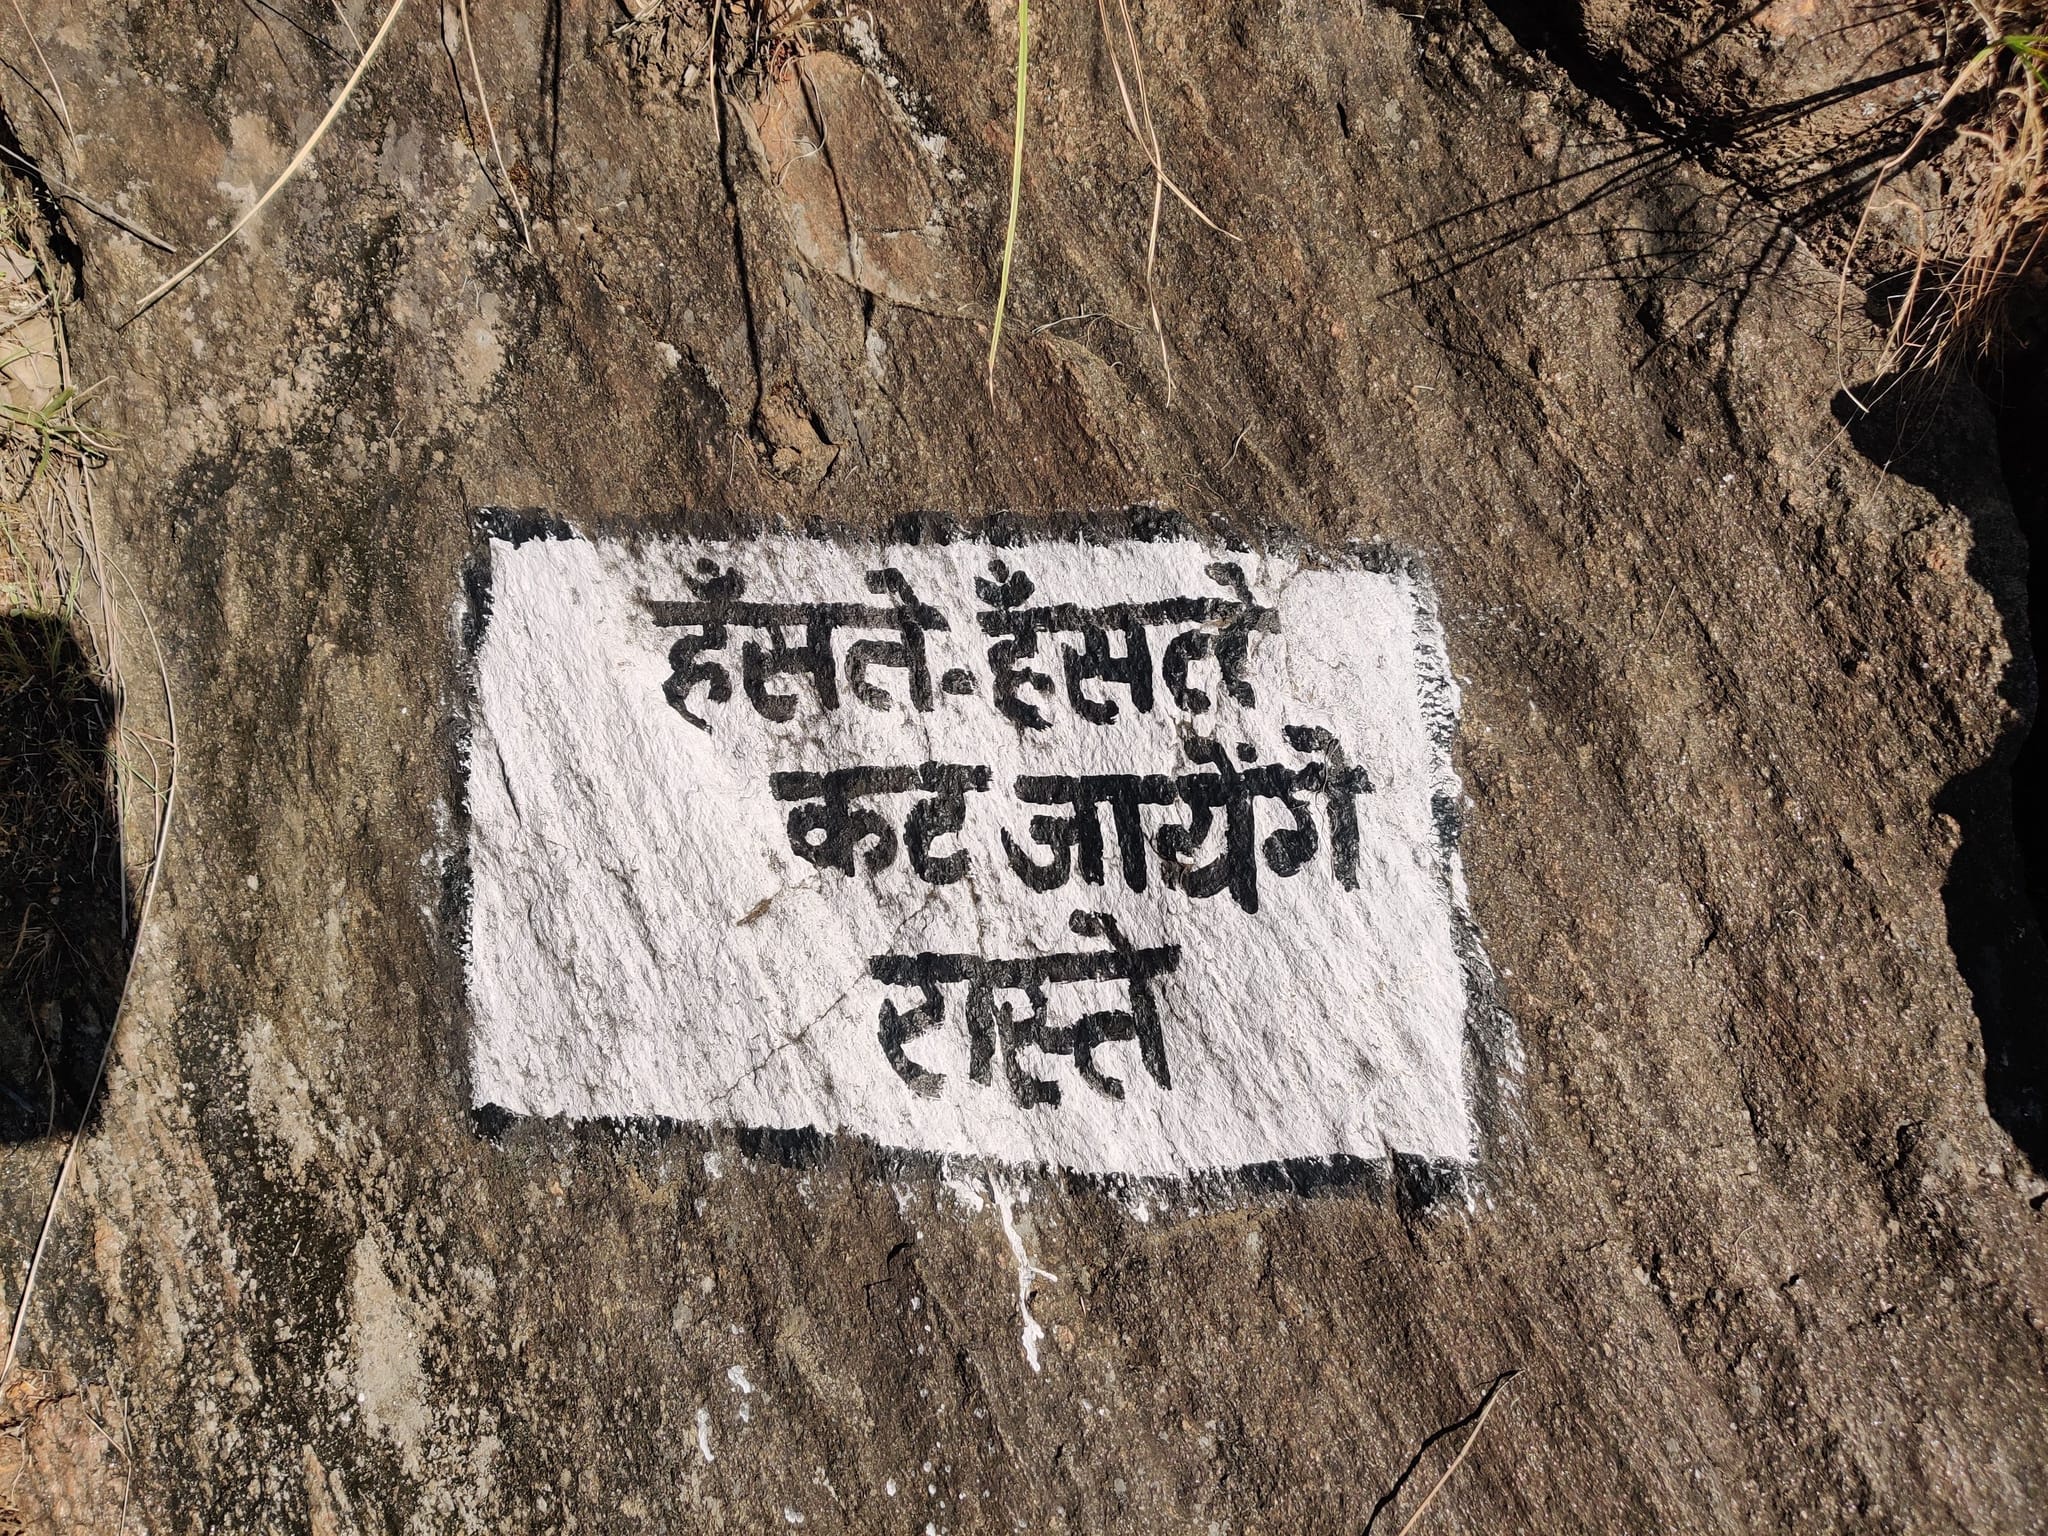 हँसते-हँसते
कट जायेंगे
रास्ते